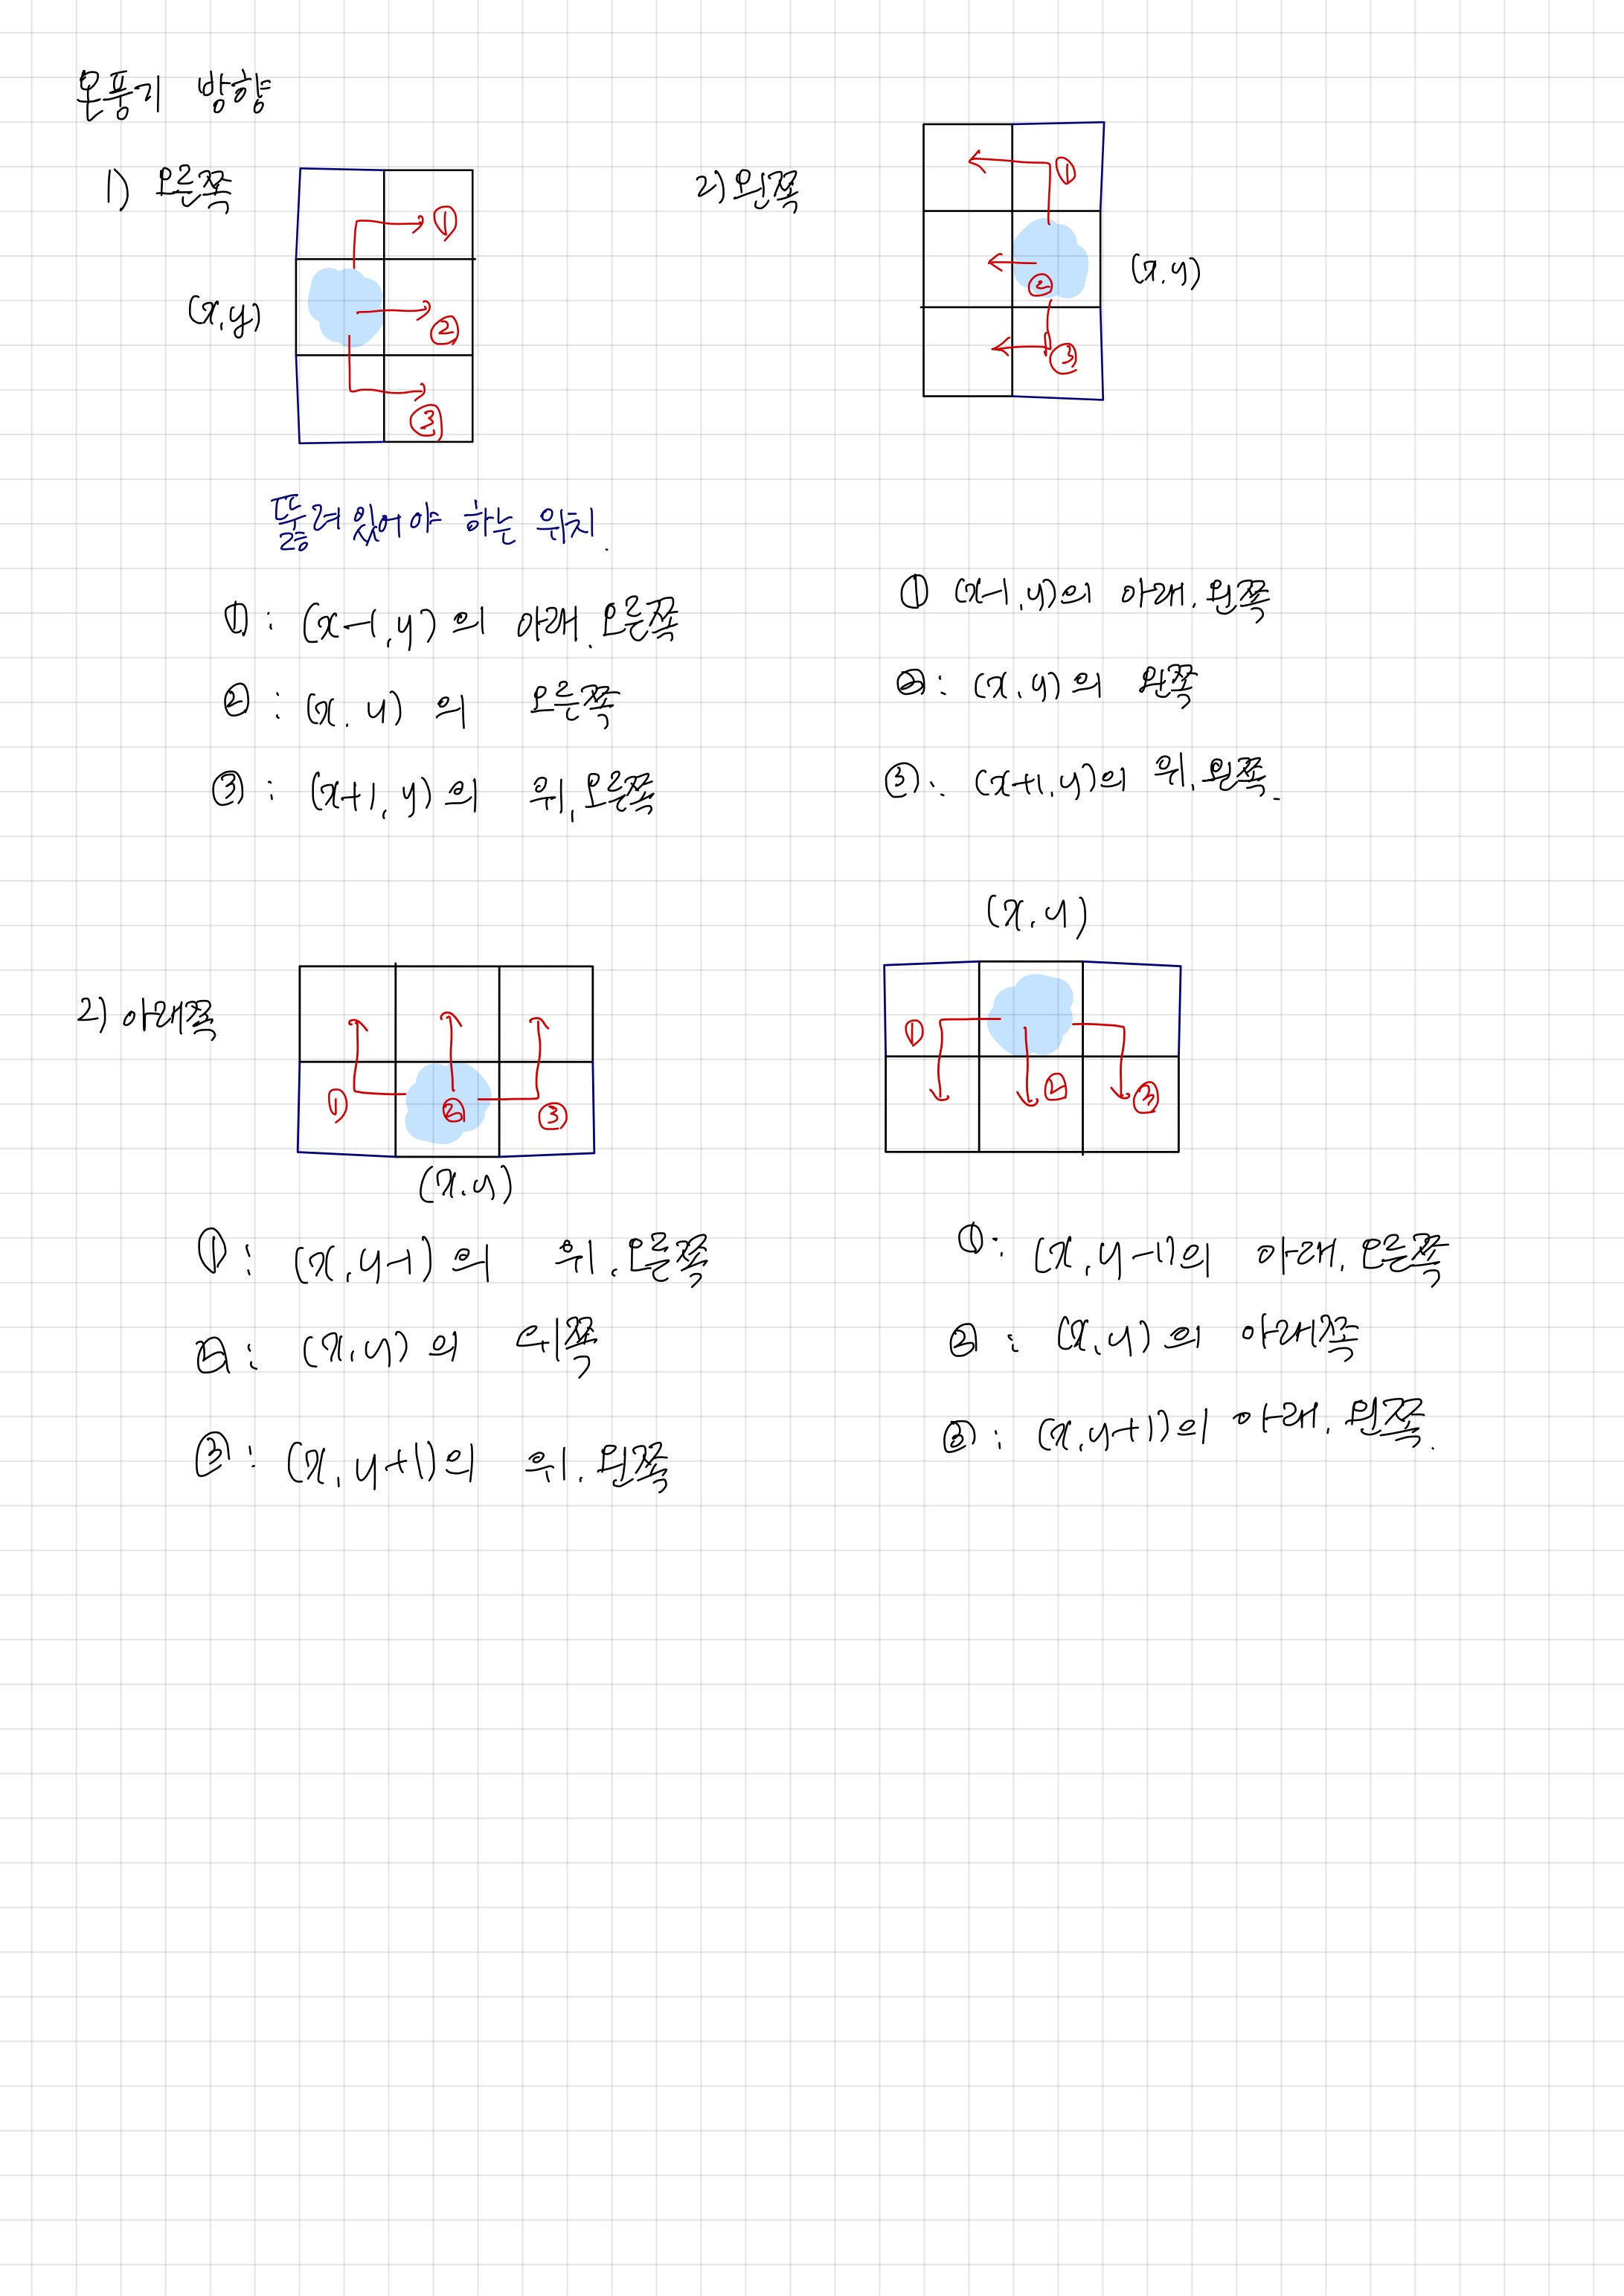 온풍기 방향
1) 오른쪽
①
(x,y)
②
③
2) 왼쪽
①
(x.y)
②
③
뚫려있어야 하는 위치.
①: (x-1,y)의 아래.오른쪽
②: (x.y)의 오른쪽
③: (x+1,y)의 위,오른쪽
① (x-1,y)의 아래.왼쪽
②: (x.y)의 왼쪽
③: (x+1,y)의 위.왼쪽.
2) 아래쪽
① ② ③
(x.y)
(x.y)
① ② ③
①: (x,y-1)의 위.오른쪽
②: (x,y)의 위쪽
③: (x,y+1)의 위.왼쪽
①: (x,y-1)의 아래.오른쪽
②: (x,y)의 아래쪽
③: (x,y+1)의 아래.왼쪽.